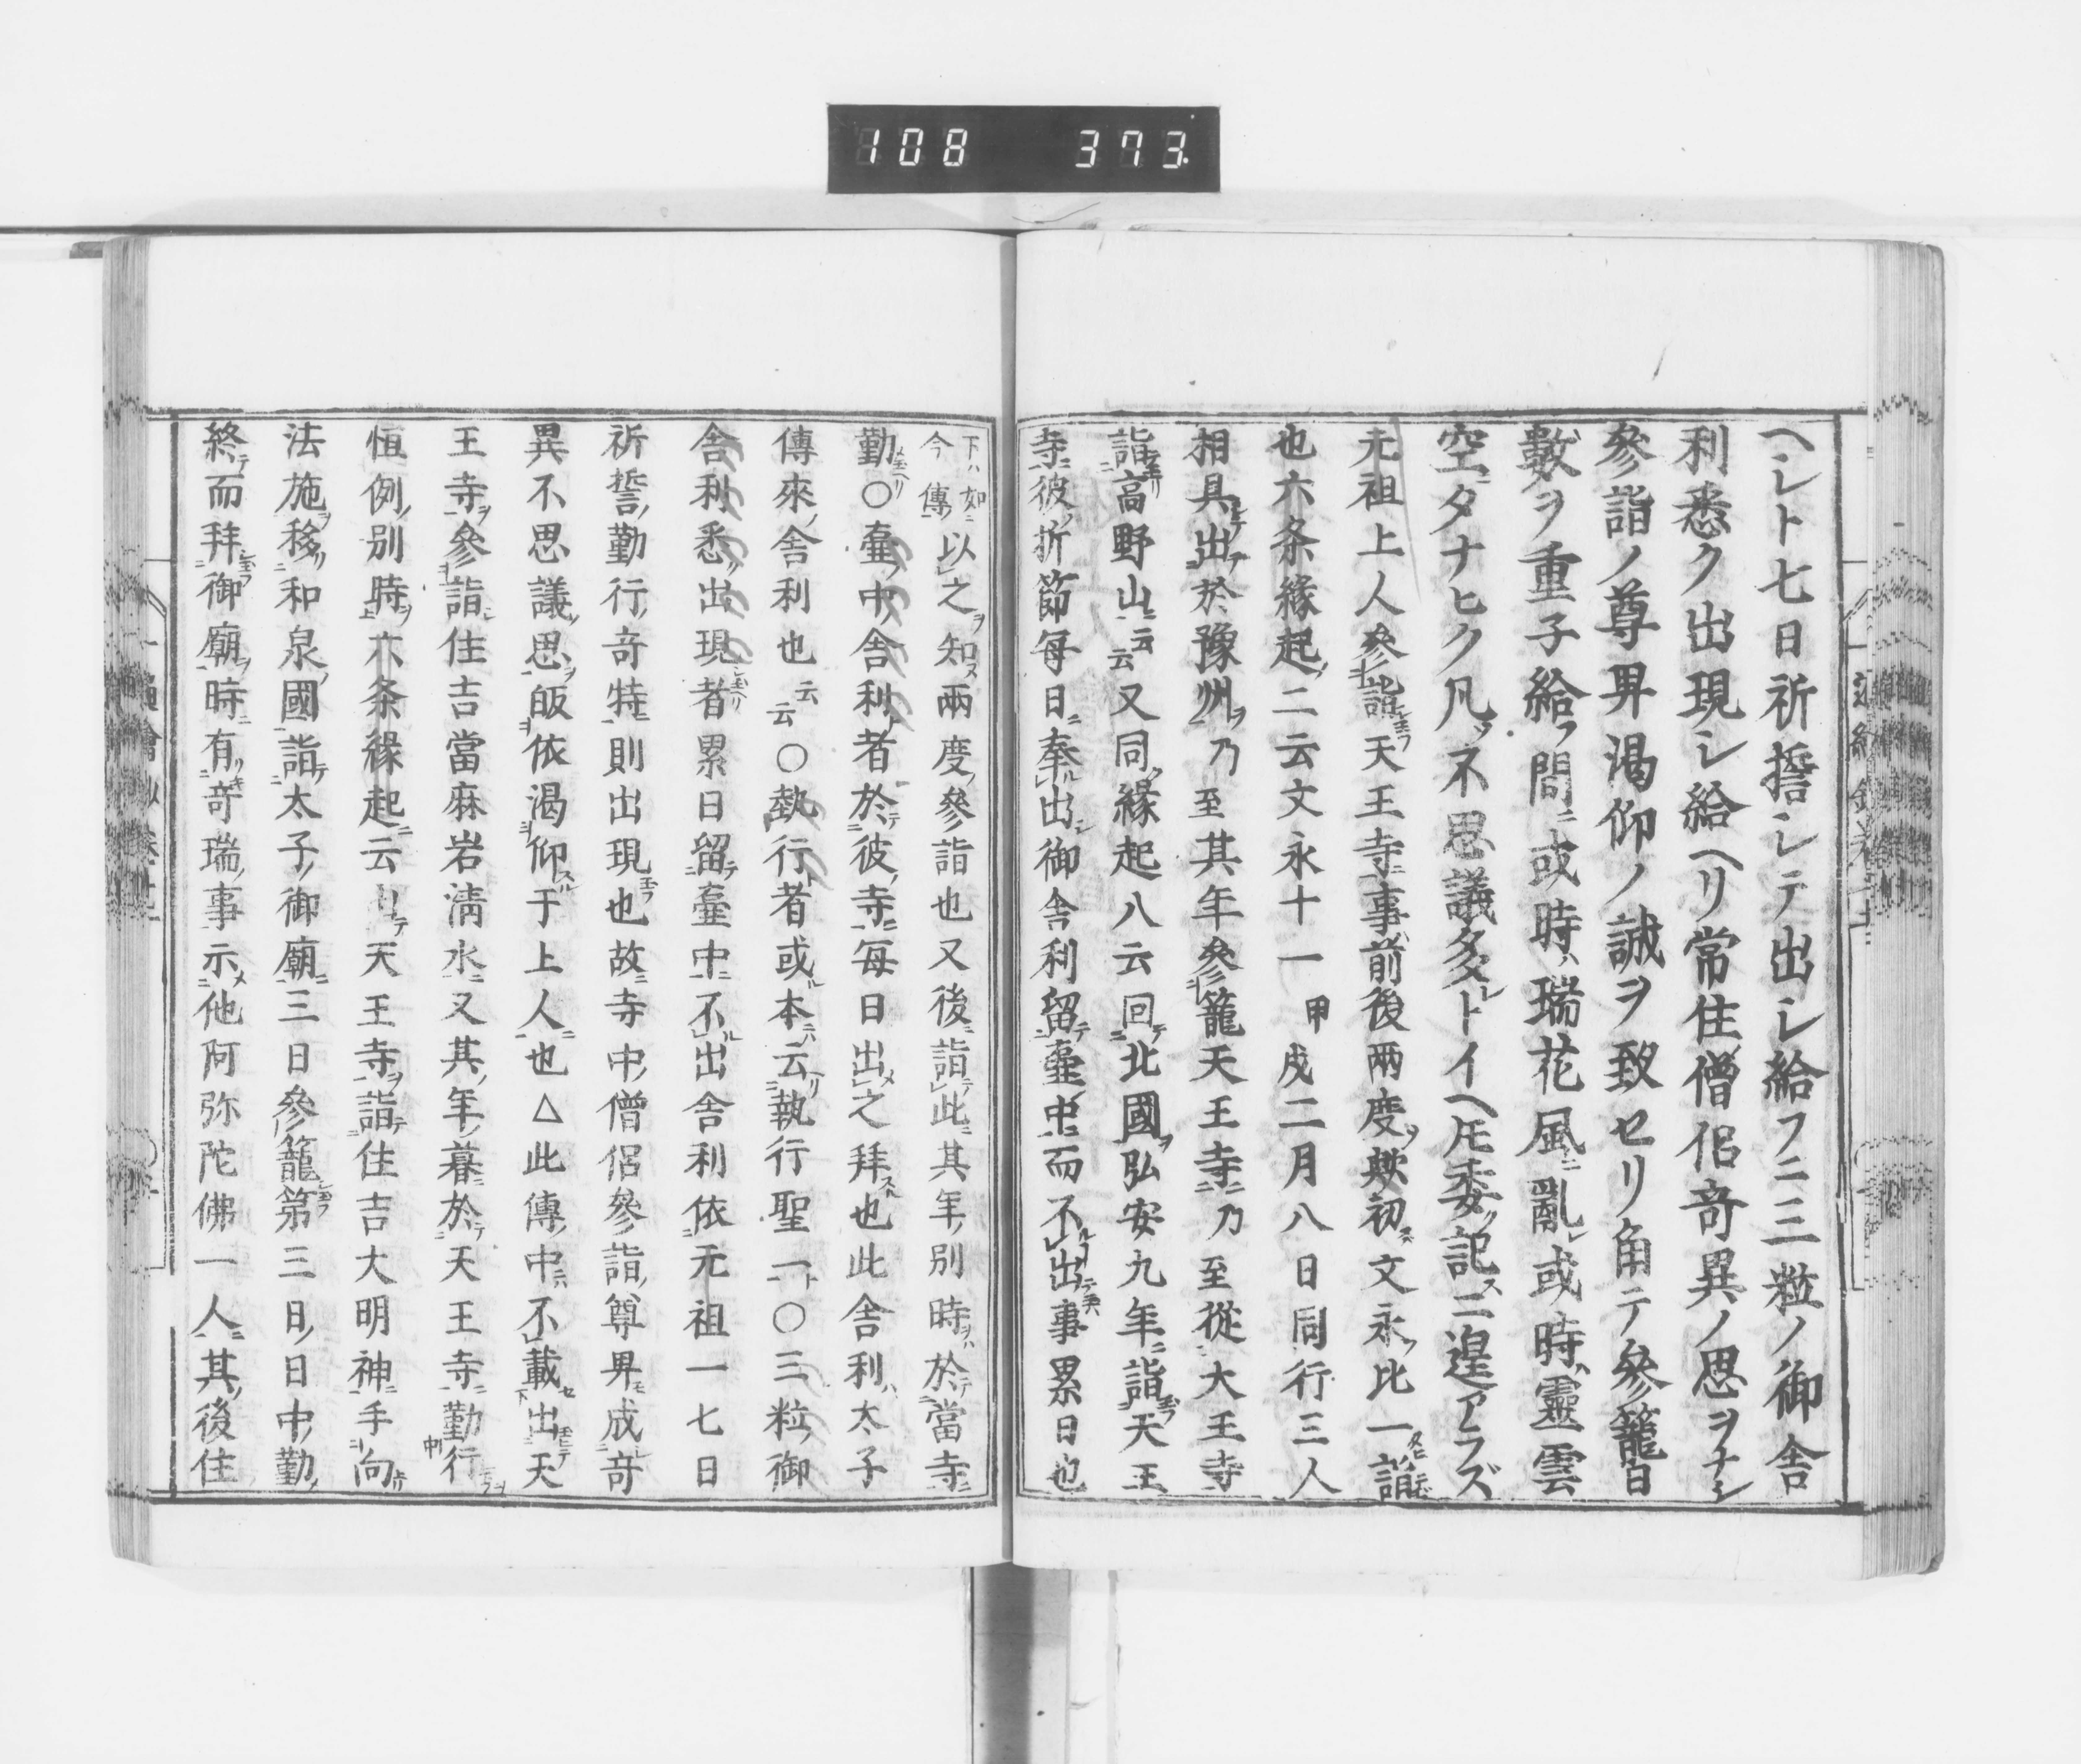 108 373
ヘシト七日祈誓シテ出シ給フニ三粒ノ御舎
利悉ク出現シ給ヘリ常住僧侶奇異ノ思ヲナシ
參詣ノ尊卑渴仰ノ誠ヲ致セリ角テ參籠日
數ヲ重子給フ間ニ或時ハ瑞花風ニ亂レ或時ハ靈雲
空ニタナヒク凡ソ不思議多シトイヘ𪜈委ク記スニ遑アラズ
元祖上人參詣天王寺事前後兩度歟初文永比一詣
也六条緣起二云文永十一甲戌二月八日同行三人
相具出於豫州乃至其年參籠天王寺乃至從大王寺
詣高野山云云又同緣起八云回北國弘安九年詣天王
寺彼折節每日奉出御舍利留臺中而不出事累日也
下如今傳以之知兩度參詣也又後詣此其年別時於當寺
勤〇臺中舍利者於彼寺每日出之拜也此舍利太子
傳來舍利也云云〇執行者或本云執行聖一〇三粒御
舍利悉出現者累日留臺中不出舍利依元祖一七日
祈誓勤行奇特則出現也故寺中僧侶參詣尊卑成奇
異不思議思皈依渴仰于上人也△此傳中不載出天
王寺參詣住吉當麻岩淸水又其年暮於天王寺勤行
恒例別時六条緣起云天王寺詣住吉大明神手向
法施移和泉國詣太子御廟三日參籠第三日日中勤
終而拜御廟時有奇瑞事示他阿弥陀佛一人其後住